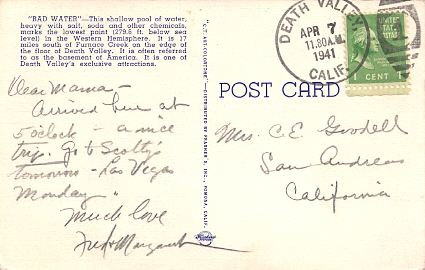 "BAD WATER"—This shallow pool of water,
heavy with salt, soda and other chemicals,
marks the lowest point (279.6 ft. below sea
level) in the Western Hemisphere. It is 17
miles south of Furnace Creek on the edge of the
floor of Death Valley. It is often referred
to as the basement of America. It is one of
Death Valley's exclusive attractions.
Dear Mama—
Arrived here at
5 o'clock — a nice
trip. Go to Scotty's
tomorrow — Las Vegas
Monday
Much love
Fred & Margaret
"C.T. ART-COLORTONE"—DISTRIBUTED BY
POST CARD
DEATH VALLEY
APR 7
11:30 A.M.
1941
CALIF.
1 CENT 1
Mrs. C. E. Goodell
San Andreas
California